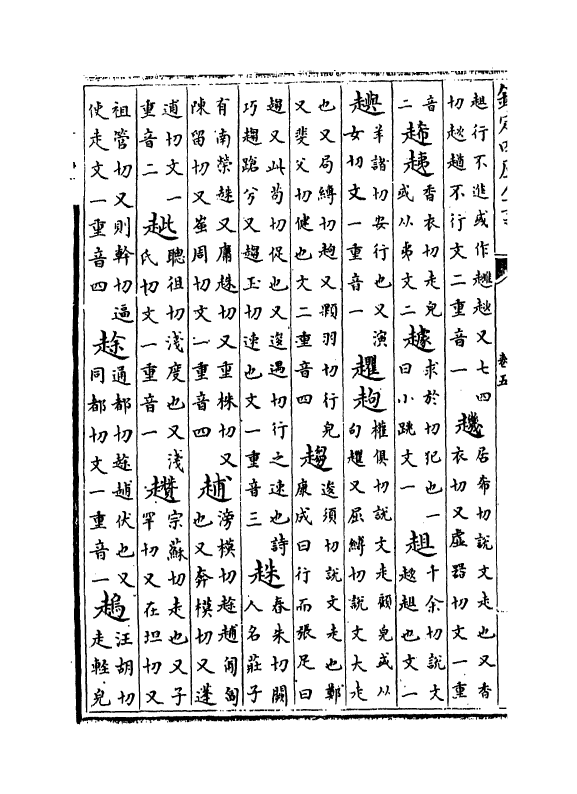 欽定四庫全書
卷五
趄行不進或作又七四
切趑趄不行文二重音一
居希切說文走也又香
衣切又虛器切文一重
音
二
香衣切走皃
或从弗文二
求於切犯也一
曰小跳文一
趄
千余切說文
趑趄也文一
䟏
羊諸切安行也又演
女切文一重音一
權俱切說文走顧皃或从
句又屈縛切說文大走
也又局縛切又顆羽切行皃
又斐父切健也文二重音四
趨
逡須切說文走也鄭
康成曰行而張足曰
趨又此苟切促也又逡遇切行之速也詩
巧趨蹌兮又趨玉切速也文一重音三
趎
春朱切闕
人名莊子
有南榮趎又庸趎切又重株切又
陳留切又周切文一重音四
滂模切匍匐
也又奔模切又蓬
逋切文一
重音二
聰徂切淺度也又淺
氏切文一重音一
趲
宗蘇切走也又子
罕切又在坦切又
祖管切又則幹切逼
使走文一重音四
通都切伏也又
同都切文一重音一
汪胡切
走輕皃